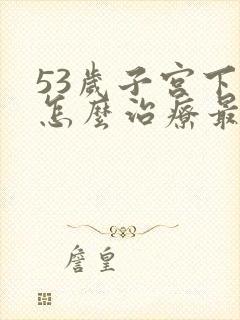 53歲子宮下
怎麼治療最
詹皇